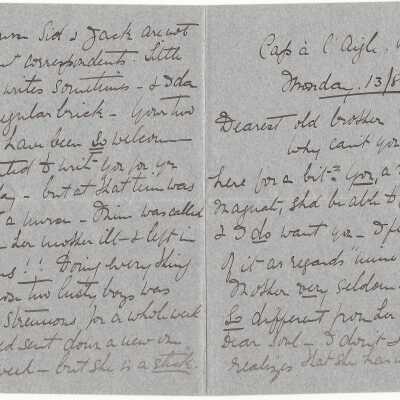 Sid & Jack are not
correspondents. Little
writes sometimes - & Ida
regular brick - Your two
have been so welcome
to write you for yr
- but at that time was
a nurse - was called
her mother ill - & left in
!! Doing everything
two lusty boys was
strenuous, for a whole week
sent down a new one
week - but she is a stick.
Cap à l'Aigle.
Monday. 13/8
Dearest old brother
why can't you
here for a bit - You, a
magnate, shd be able to
& I do want you - I
of it as regards "mine
Mother very seldom
So different from her
dear soul - I don't
realizes that she has